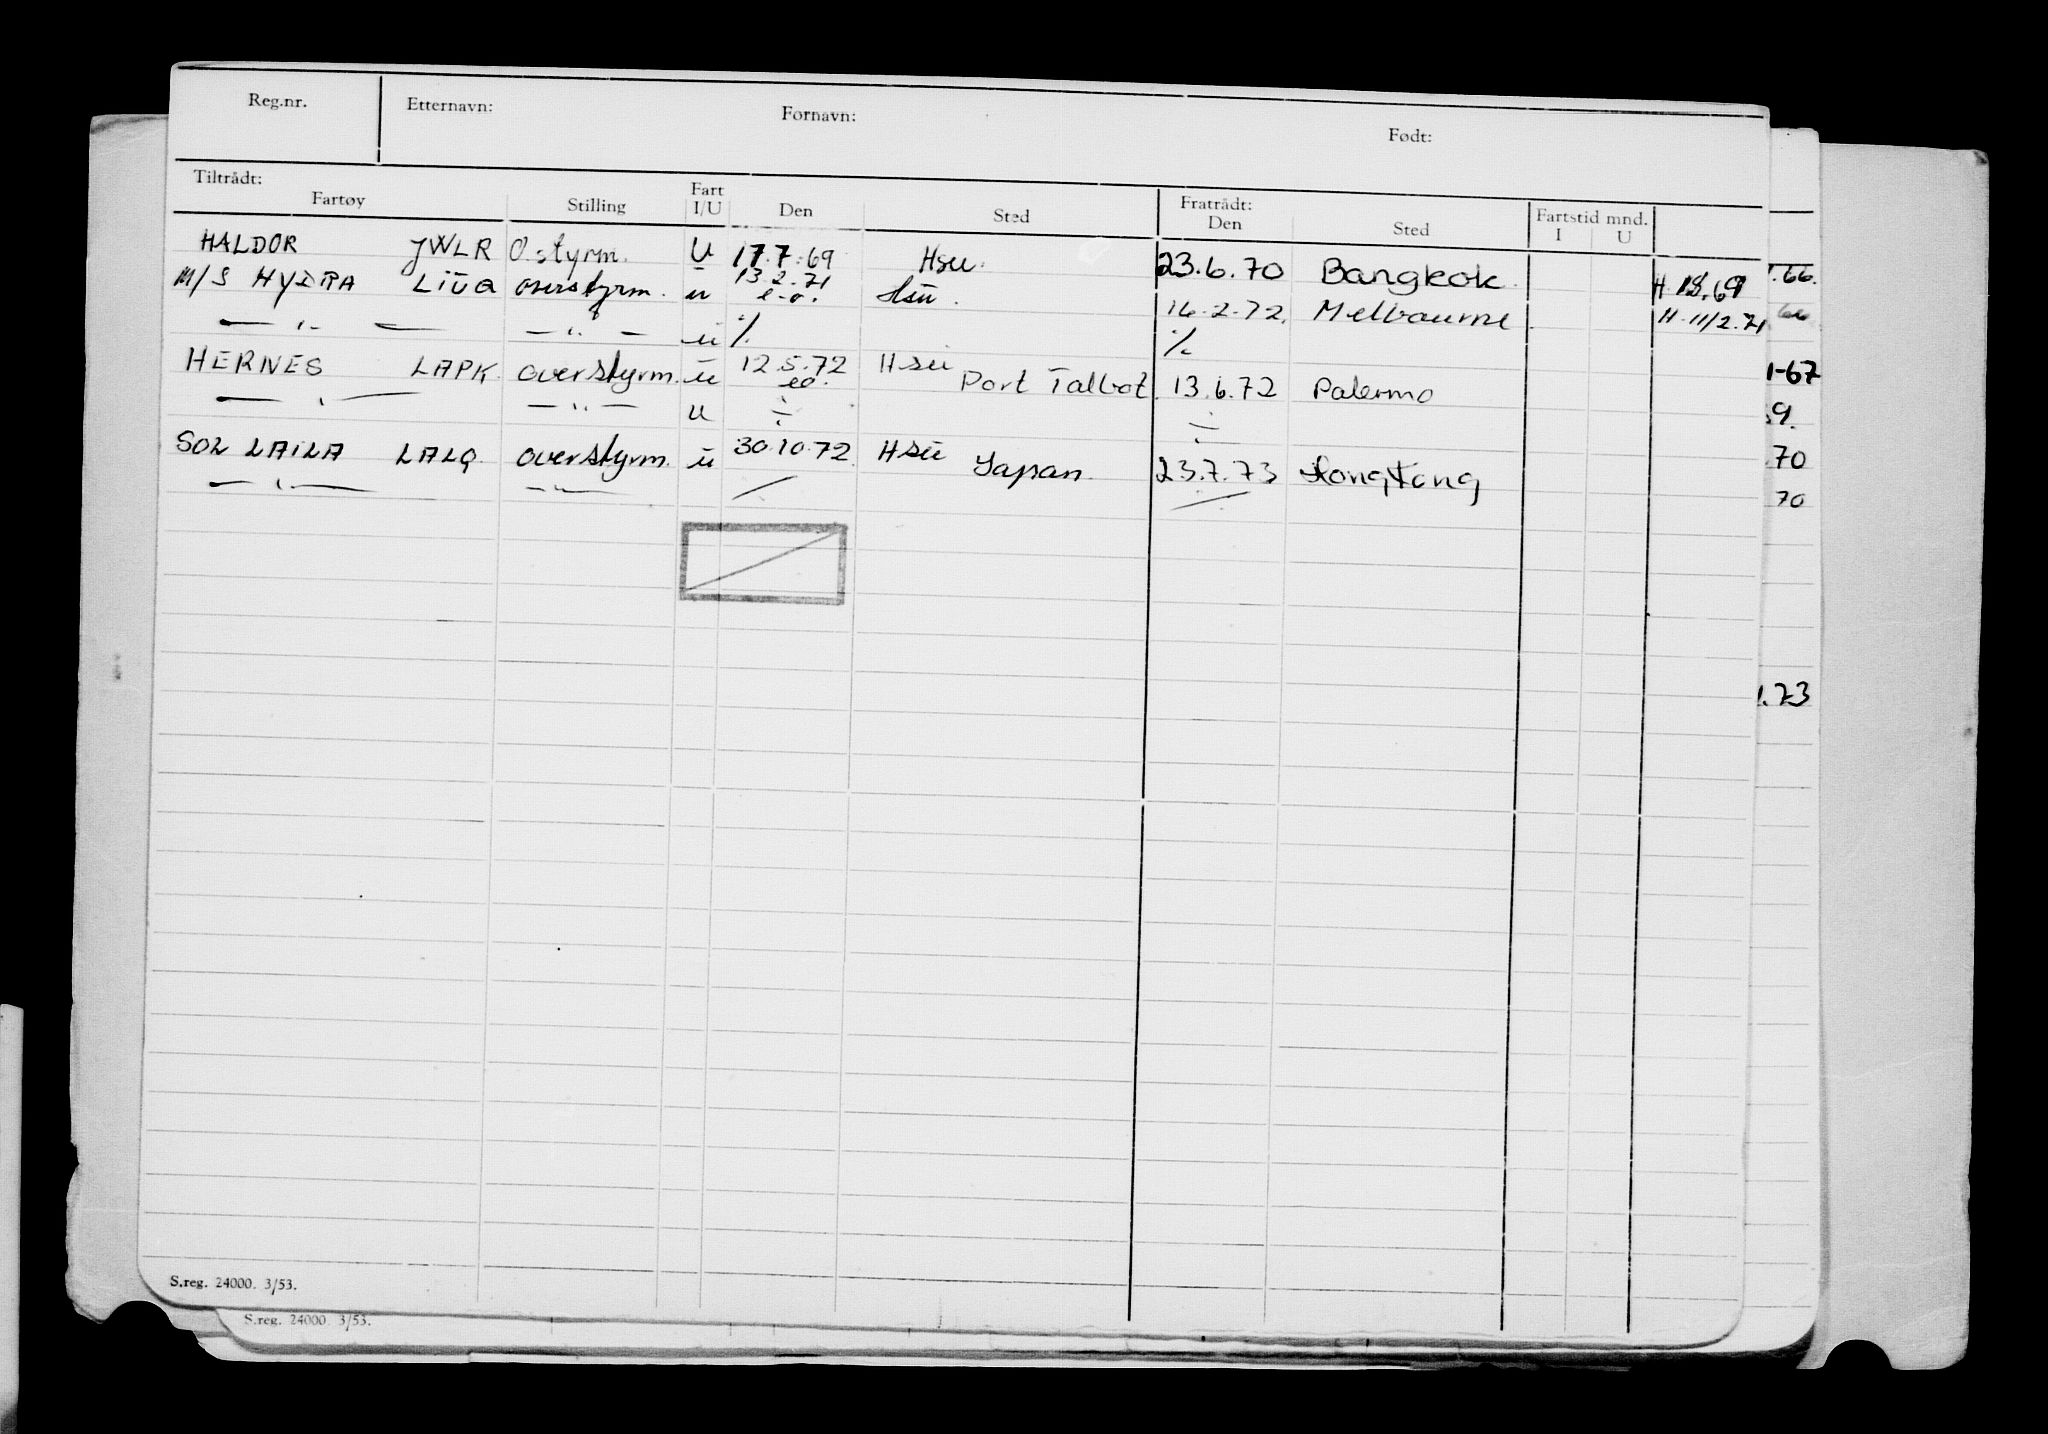 Reg.nr. Etternavn: Fornavn: Født:
Tiltrådt: Fratrådt:
Fartøy Stilling Fart I/U Den Sted Den Sted Fartstid mnd. I U
HALDOR JWLR O.styrm. U 17.7.69 Hsu. 23.6.70 Bangkok. .66.
M/S HYDRA LIUQ overstyrm. u 13.2.71 e.o. Hsu. 16.2.72. Melbourne H. 11/2.71
— " — — " — u % %
HERNES LAPK. overstyrm. u 12.5.72 eo. Hsu Port Talbot. 13.6.72 Palermo -67
— " — — " — u 9.
SOL LAILA LALQ. overstyrm. u 30.10.72. Hsu Japan. 23.7.73 Hongkong 70
— " — — " — 70
.73
S.reg. 24000. 3/53.
S.reg. 24000 3/53.